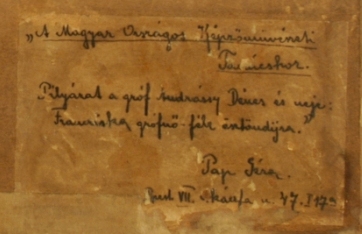 „A Magyar Országos Képzőművészeti
Tanácshoz.
Pályázat a gróf Andrássy Dénes és neje:
Franciska grófnő-féle ösztöndíjra."
Pap Géza
Bud VII. Akácfa u. 47. I